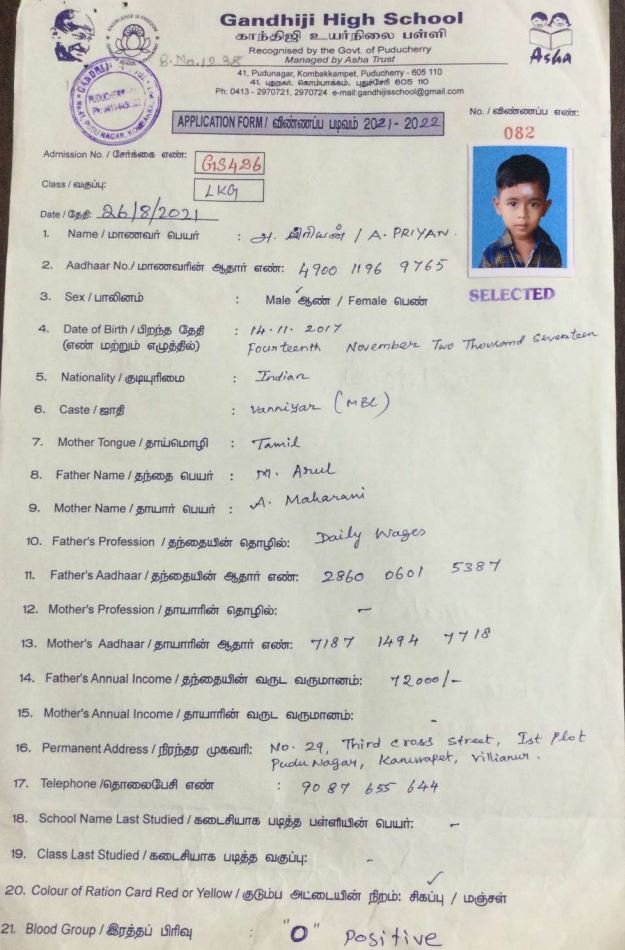 Gandhiji High School
காந்திஜி உயர்நிலை பள்ளி
Recognised by the Govt. of Puducherry
Managed by Asha Trust
Asha
B.No.1238
41, Pudunagar, Kombakkampet, Puducherry - 605 110
41, புதுநகர், கொம்பாக்கம், புதுச்சேரி 605 110
Ph: 0413 - 2970721, 2970724 e-mail:gandhijisschool@gmail.com
APPLICATION FORM / விண்ணப்ப படிவம் 2021 - 2022
No. / விண்ணப்ப எண்:
082
Admission No. / சேர்க்கை எண்: GS426
Class / வகுப்பு: LKG
Date / தேதி: 26/8/2021
SELECTED
1. Name / மாணவர் பெயர் : அ. பிரியன் / A. PRIYAN.
2. Aadhaar No./ மாணவரின் ஆதார் எண்: 4900 1196 9765
3. Sex / பாலினம் : Male ஆண் / Female பெண்
4. Date of Birth / பிறந்த தேதி : 14.11.2017
(எண் மற்றும் எழுத்தில்) Fourteenth November Two Thousand Seventeen
5. Nationality / குடியுரிமை : Indian
6. Caste / ஜாதி : Vanniyar (MBC)
7. Mother Tongue / தாய்மொழி : Tamil
8. Father Name / தந்தை பெயர் : M. Arul
9. Mother Name / தாயார் பெயர் : A. Maharani
10. Father's Profession / தந்தையின் தொழில்: Daily Wages
11. Father's Aadhaar / தந்தையின் ஆதார் எண்: 2860 0601 5387
12. Mother's Profession / தாயாரின் தொழில்: -
13. Mother's Aadhaar / தாயாரின் ஆதார் எண்: 7187 1494 7718
14. Father's Annual Income / தந்தையின் வருட வருமானம்: 72000/-
15. Mother's Annual Income / தாயாரின் வருட வருமானம்: -
16. Permanent Address / நிரந்தர முகவரி: No. 29, Third Cross Street, Ist Plot
Pudu Nagar, Kanuvapet, Villianur.
17. Telephone /தொலைபேசி எண் : 9087 655 644
18. School Name Last Studied / கடைசியாக படித்த பள்ளியின் பெயர்: -
19. Class Last Studied / கடைசியாக படித்த வகுப்பு: -
20. Colour of Ration Card Red or Yellow / குடும்ப அட்டையின் நிறம்: சிகப்பு / மஞ்சள்
21. Blood Group / இரத்தப் பிரிவு : "O" Positive